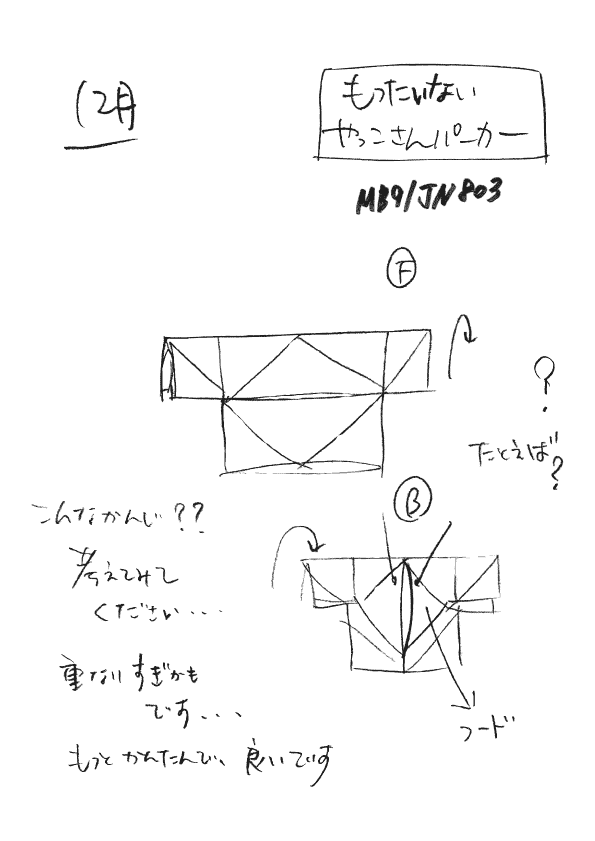 12月
もったいない
やっこさんパーカー
MB9/JN803
F
?
たとえば?
B
こんなかんじ??
考えてみて
ください・・・
重なりすぎかも
です・・・
もっとかんたんで、良いです
フード